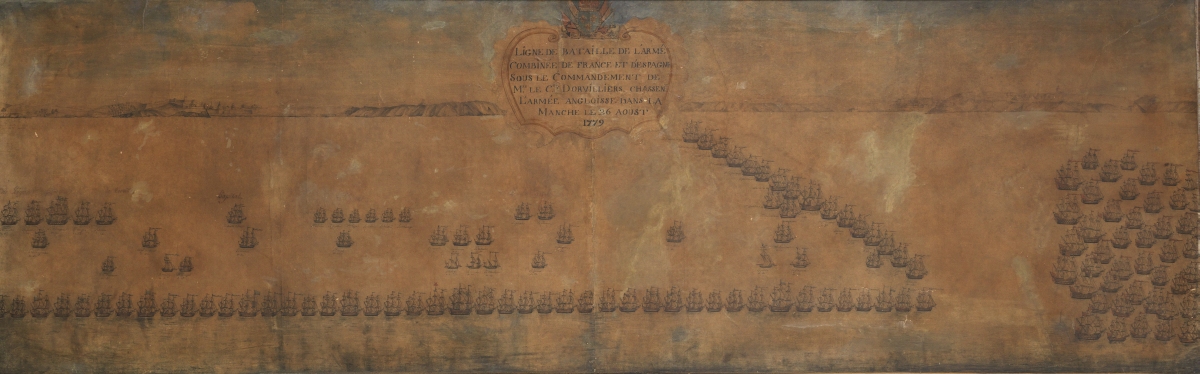 LIGNE DE BATAILLE DE L'ARMÉE
COMBINÉE DE FRANCE ET DESPAGNE
SOUS LE COMMANDEMENT DE
MR. LE CTE. DORVILLIERS CHASSEN
L'ARMÉE ANGLOISSE DANS LA
MANCHE LE 26 AOUST
1779